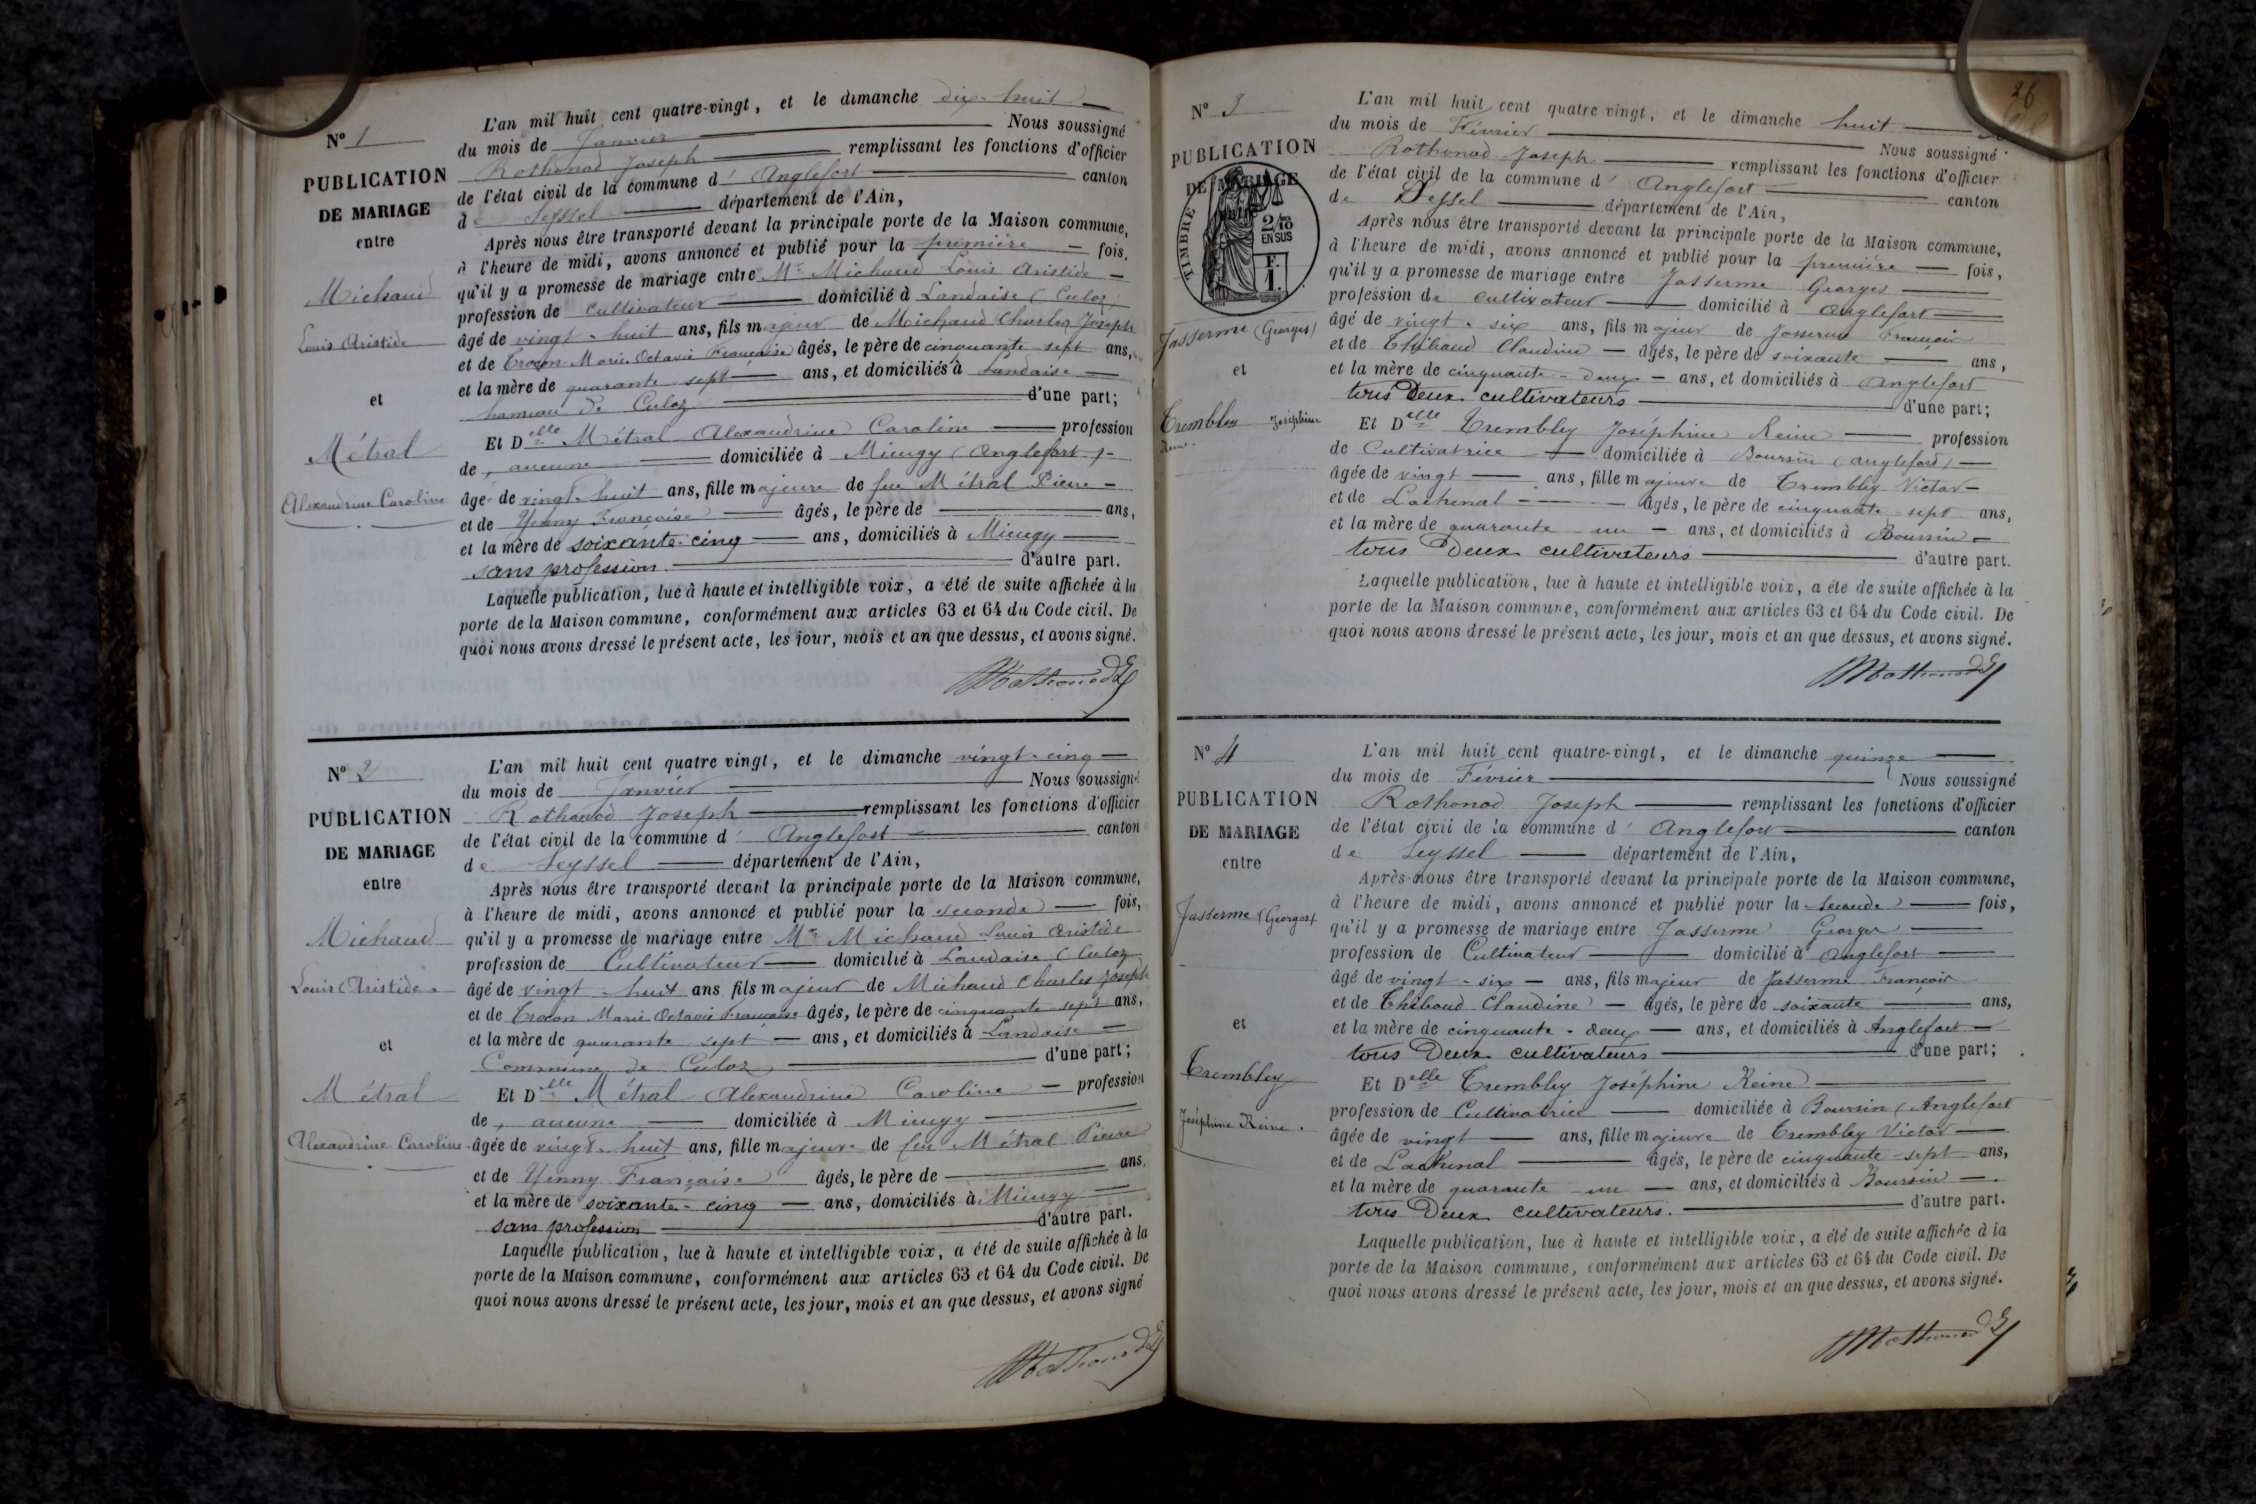 N° 1
PUBLICATION
DE MARIAGE
entre
Michaud
Louis Aristide
et
Métral
Alexandrine Caroline
L'an mil huit cent quatre-vingt, et le dimanche dix-huit
du mois de Janvier Nous soussigné
Rothonod Joseph remplissant les fonctions d'officier
de l'état civil de la commune d' Anglefort canton
de Seyssel département de l'Ain,
Après nous être transporté devant la principale porte de la Maison commune,
à l'heure de midi, avons annoncé et publié pour la première fois,
qu'il y a promesse de mariage entre Mr Michaud Louis Aristide
profession de Cultivateur domicilié à Landaise (Culoz)
âgé de vingt-huit ans, fils majeur de Michaud Charles Joseph
et de Marie Octavie Françoise âgés, le père de cinquante sept ans,
et la mère de quarante sept ans, et domiciliés à Landaise
hameau de Culoz d'une part;
Et Delle Métral Alexandrine Caroline profession
de, aucune domiciliée à Mieugy (Anglefort)
âgé de vingt-huit ans, fille majeure de feu Métral Pierre
et de Yenny Françoise âgés, le père de ans,
et la mère de soixante-cinq ans, domiciliés à Mieugy
sans profession d'autre part.
Laquelle publication, lue à haute et intelligible voix, a été de suite affichée à la
porte de la Maison commune, conformément aux articles 63 et 64 du Code civil. De
quoi nous avons dressé le présent acte, les jour, mois et an que dessus, et avons signé.
N° 2
PUBLICATION
DE MARIAGE
entre
Michaud
Louis Aristide
et
Métral
Alexandrine Caroline
L'an mil huit cent quatre vingt, et le dimanche vingt-cinq
du mois de Janvier Nous soussigné
Rothonod Joseph remplissant les fonctions d'officier
de l'état civil de la commune d' Anglefort canton
de Seyssel département de l'Ain,
Après nous être transporté devant la principale porte de la Maison commune,
à l'heure de midi, avons annoncé et publié pour la seconde fois,
qu'il y a promesse de mariage entre Mr Michaud Louis Aristide
profession de Cultivateur domicilié à Landaise (Culoz
âgé de vingt-huit ans fils majeur de Michaud Charles Joseph
et de Marie Octavie Françoise âgés, le père de cinquante sept ans,
et la mère de quarante sept ans, et domiciliés à Landaise
Commune de Culoz d'une part;
Et Delle Métral Alexandrine Caroline profession
de, aucune domiciliée à Mieugy
âgée de vingt-huit ans, fille majeure de feu Métral Pierre
et de Yenny Françoise âgés, le père de ans,
et la mère de soixante-cinq ans, domiciliés à Mieugy
sans profession d'autre part.
Laquelle publication, lue à haute et intelligible voix, a été de suite affichée à la
porte de la Maison commune, conformément aux articles 63 et 64 du Code civil. De
quoi nous avons dressé le présent acte, les jour, mois et an que dessus, et avons signé
26
N° 3
PUBLICATION
DE MARIAGE
TIMBRE
2/10
EN SUS
F.
1.
Jasserme (Georges)
et
Trembley Joséphine
Reine.
L'an mil huit cent quatre vingt, et le dimanche huit
du mois de Février Nous soussigné
Rothonod Joseph remplissant les fonctions d'officier
de l'état civil de la commune d' Anglefort canton
de Seyssel département de l'Ain,
Après nous être transporté devant la principale porte de la Maison commune,
à l'heure de midi, avons annoncé et publié pour la première fois,
qu'il y a promesse de mariage entre Jasserme Georges
profession de Cultivateur domicilié à Anglefort
âgé de vingt-six ans, fils majeur de Jasserme François
et de Thibaud Claudine âgés, le père de soixante ans,
et la mère de cinquante-deux ans, et domiciliés à Anglefort
tous Deux cultivateurs d'une part;
Et Delle Trembley Joséphine Reine profession
de Cultivatrice domiciliée à Boursin (Anglefort)
âgée de vingt ans, fille majeure de Trembley Victor
et de Lachenal âgés, le père de cinquante-sept ans,
et la mère de quarante un ans, et domiciliés à Boursin
tous Deux cultivateurs d'autre part.
Laquelle publication, lue à haute et intelligible voix, a été de suite affichée à la
porte de la Maison commune, conformément aux articles 63 et 64 du Code civil. De
quoi nous avons dressé le présent acte, les jour, mois et an que dessus, et avons signé.
N° 4
PUBLICATION
DE MARIAGE
entre
Jasserme (Georges)
et
Trembley
Joséphine Reine.
L'an mil huit cent quatre-vingt, et le dimanche quinze
du mois de Février Nous soussigné
Rothonod Joseph remplissant les fonctions d'officier
de l'état civil de la commune d' Anglefort canton
de Seyssel département de l'Ain,
Après nous être transporté devant la principale porte de la Maison commune,
à l'heure de midi, avons annoncé et publié pour la seconde fois,
qu'il y a promesse de mariage entre Jasserme Georges
profession de Cultivateur domicilié à Anglefort
âgé de vingt-six ans, fils majeur de Jasserme François
et de Thibaud Claudine âgés, le père de soixante ans,
et la mère de cinquante-deux ans, et domiciliés à Anglefort
tous Deux cultivateurs d'une part;
Et Delle Trembley Joséphine Reine
profession de Cultivatrice domiciliée à Boursin (Anglefort
âgée de vingt ans, fille majeure de Trembley Victor
et de Lachenal âgés, le père de cinquante-sept ans,
et la mère de quarante un ans, et domiciliés à Boursin
tous Deux cultivateurs. d'autre part.
Laquelle publication, lue à haute et intelligible voix, a été de suite affichée à la
porte de la Maison commune, conformément aux articles 63 et 64 du Code civil. De
quoi nous avons dressé le présent acte, les jour, mois et an que dessus, et avons signé.